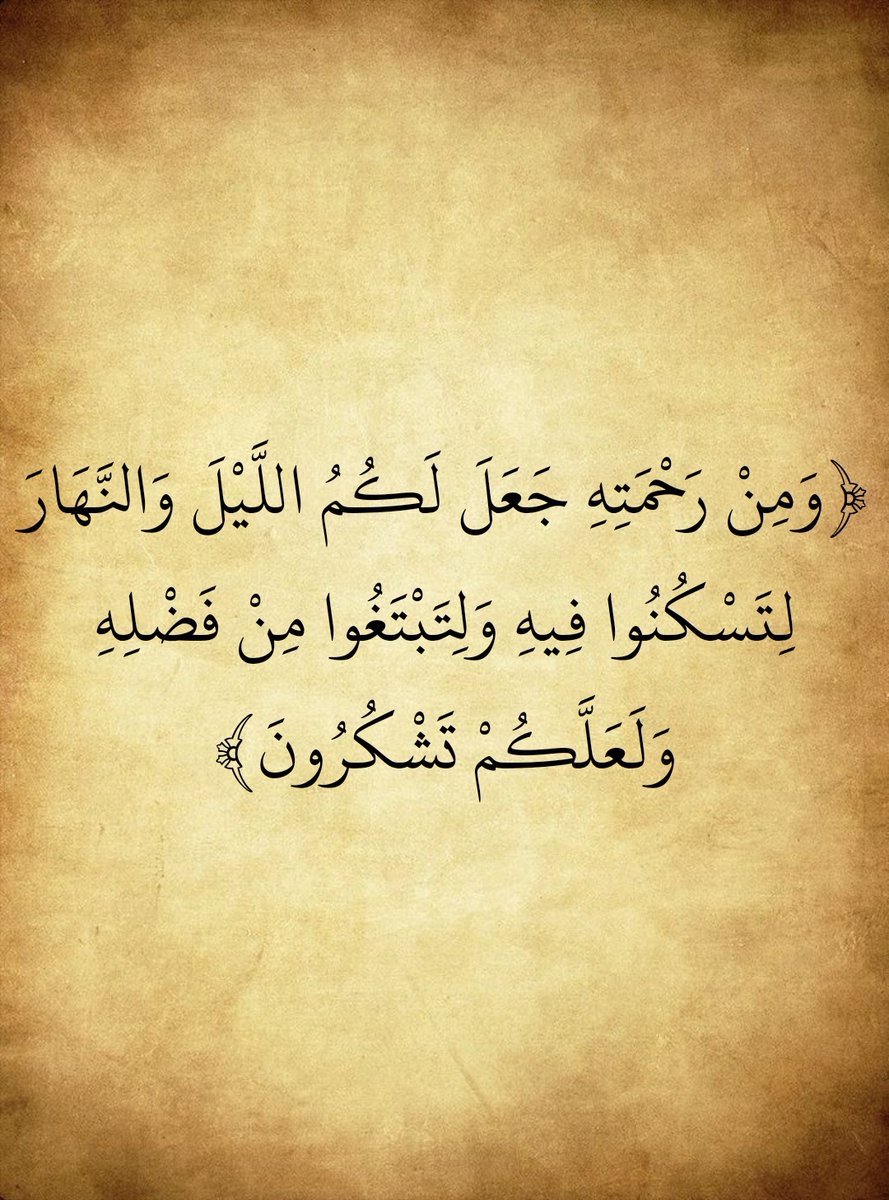 ﴿وَمِنْ رَحْمَتِهِ جَعَلَ لَكُمُ اللَّيْلَ وَالنَّهَارَ
لِتَسْكُنُوا فِيهِ وَلِتَبْتَغُوا مِنْ فَضْلِهِ
وَلَعَلَّكُمْ تَشْكُرُونَ﴾